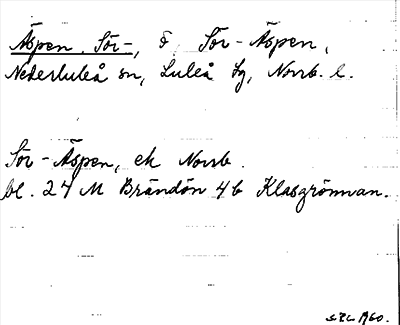 Äspen, Sör-, ö, Sör-Äspen,
Nederluleå sn, Luleå tg, Norrb. l.
Sör-Äspen, ek Norrb.
bl. 24 M Brändön 4b Klasgrönnan.
1960.